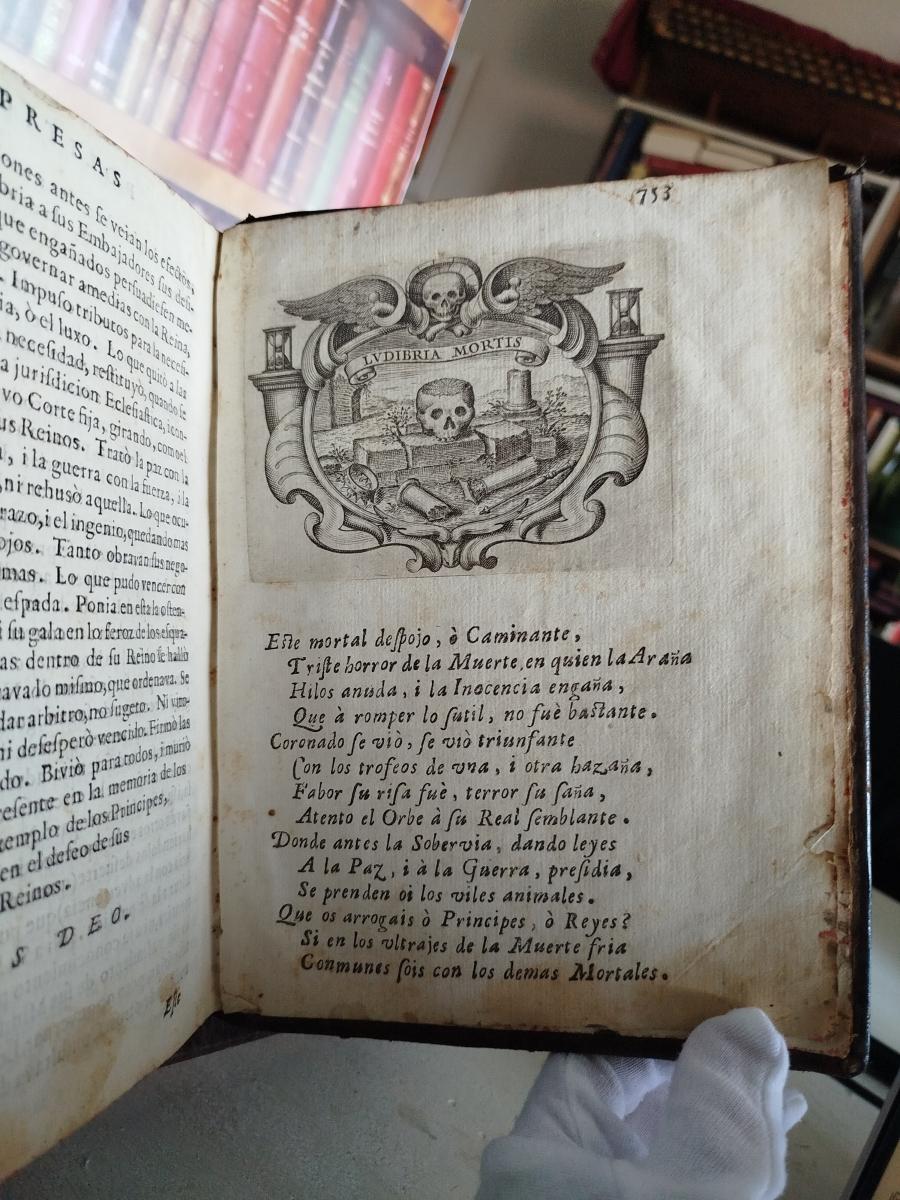 PRESAS
ones antes ſe veian los efectos,
bria a ſus Embajadores ſus deſi-
que engañados perſuadieſen me-
governar amedias con la Reina,
. Impuſo tributos para la neceſi-
ia, ò el luxo. Lo que quitò a las
neceſidad, reſtituyò, quando ſe
a juriſdicion Ecleſiaſtica, i con-
vo Corte fija, girando, como el
us Reinos. Tratò la paz con la
, i la guerra con la fuerza, i la
, ni rehusò aquella. Lo que ocu-
razo, i el ingenio, quedando mas
ojos. Tanto obravan ſus nego-
mas. Lo que pudo vencer con
eſpada. Ponia en eſta la oſten-
i ſu gala en lo feroz de los eſqua-
as dentro de ſu Reino ſe hallò
ava lo miſmo, que ordenava. Se
dar arbitro, no ſugeto. Ni vitu-
ni deſeſperò vencido. Firmò las
do. Bivió para todos, i muriò
reſente en la memoria de los
xemplo de los Principes,
en el deſeo de ſus
Reinos.
S DEO.
Eſte
753
LVDIBRIA MORTIS
Eſte mortal deſpojo, ò Caminante,
Triſte horror de la Muerte, en quien la Araña
Hilos anuda, i la Inocencia engaña,
Que à romper lo ſutil, no fuè baſtante.
Coronado ſe viò, ſe viò triunfante
Con los trofeos de vna, i otra hazaña,
Fabor ſu riſa fuè, terror ſu ſaña,
Atento el Orbe à ſu Real ſemblante.
Donde antes la Sobervia, dando leyes
A la Paz, i à la Guerra, preſidia,
Se prenden oi los viles animales.
Que os arrogais ò Principes, ò Reyes?
Si en los vltrajes de la Muerte fria
Conmunes ſois con los demas Mortales.